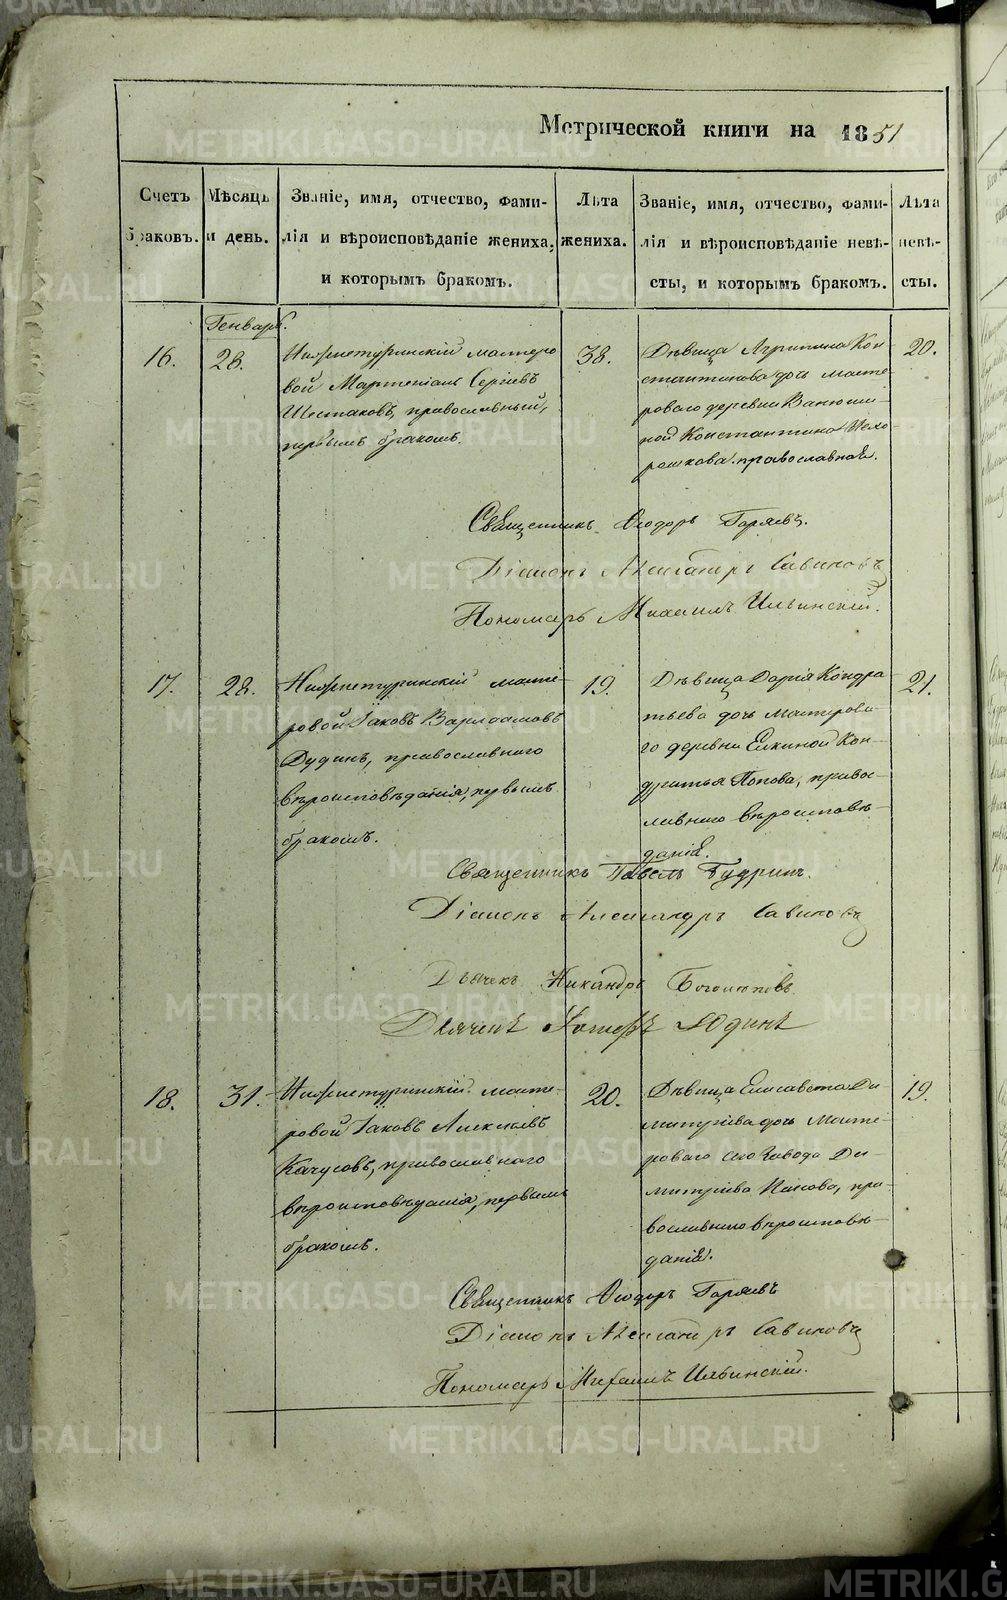 Метрической книги на 1851
Счетъ браковъ.
Мѣсяцъ и день.
Званіе, имя, отчество, фами-
лія и вѣроисповѣданіе жениха,
и которымъ бракомъ.
Лѣта жениха.
Званіе, имя, отчество, фами-
лія и вѣроисповѣданіе невѣ-
сты, и которымъ бракомъ.
Лѣта невѣ-
сты.
Генварь.
16.
28.
Нижнетуринскій мастеро
вой Мартеніанъ Сергіевъ
Шестаковъ, православный,
первымъ бракомъ.
38.
Дѣвица Агрипина Кон
стантинова дочь масте
роваго деревни Ванюши-
ной Константина Нехо-
рошкова. православная.
20.
Священникъ Ѳеодоръ Горяевъ.
Діаконъ Александръ Савиновъ
Пономарь Михаилъ Ильинскій.
17.
28.
Нижнетуринскій масте-
ровой Іаковъ Варлаамовъ
Дудинъ, православнаго
вѣроисповѣданія, первымъ
бракомъ.
19.
Дѣвица Дарія Кондра
тьева дочь мастерова-
го деревни Елкиной Кон-
дратья Попова, правос-
лавнаго вѣроисповѣ-
данія.
21.
Священникъ Павелъ Будринъ.
Діаконъ Александръ Савиновъ
Дьячекъ Никандръ
Дьячекъ Іосифъ Юдинъ
18.
31.
Нижнетуринскій масте-
ровой Іаковъ Алексіевъ
Качусовъ, православнаго
вѣроисповѣданія, первымъ
бракомъ.
20.
Дѣвица Елисавета Ди
митріева дочь Масте-
роваго сего Завода Ди-
митріева, пра-
вославнаго вѣроисповѣ-
данія.
19.
Священникъ Ѳеодоръ Горяевъ
Діаконъ Александръ Савиновъ
Пономарь Михаилъ Ильинскій.
METRIKI.GASO-URAL.RU